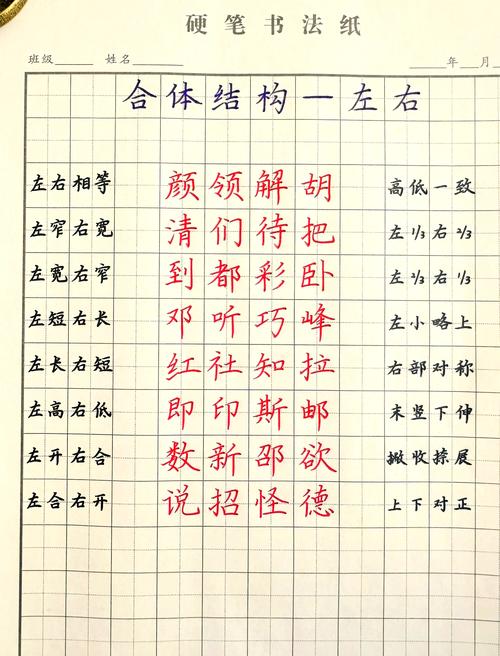 硬笔书法纸
班级 姓名 年 月
合体结构—左右
左右相等 颜领解胡 高低一致
左窄右宽 清们待把 左1/3右2/3
左宽右窄 到都彩卧 左2/3右1/3
左短右长 邓听巧峰 左小略上
左长右短 红社知拉 右部对称
左高右低 即印斯邮 末竖下伸
左开右合 数新邵欲 撇收捺展
左合右开 说招怪德 上下对正